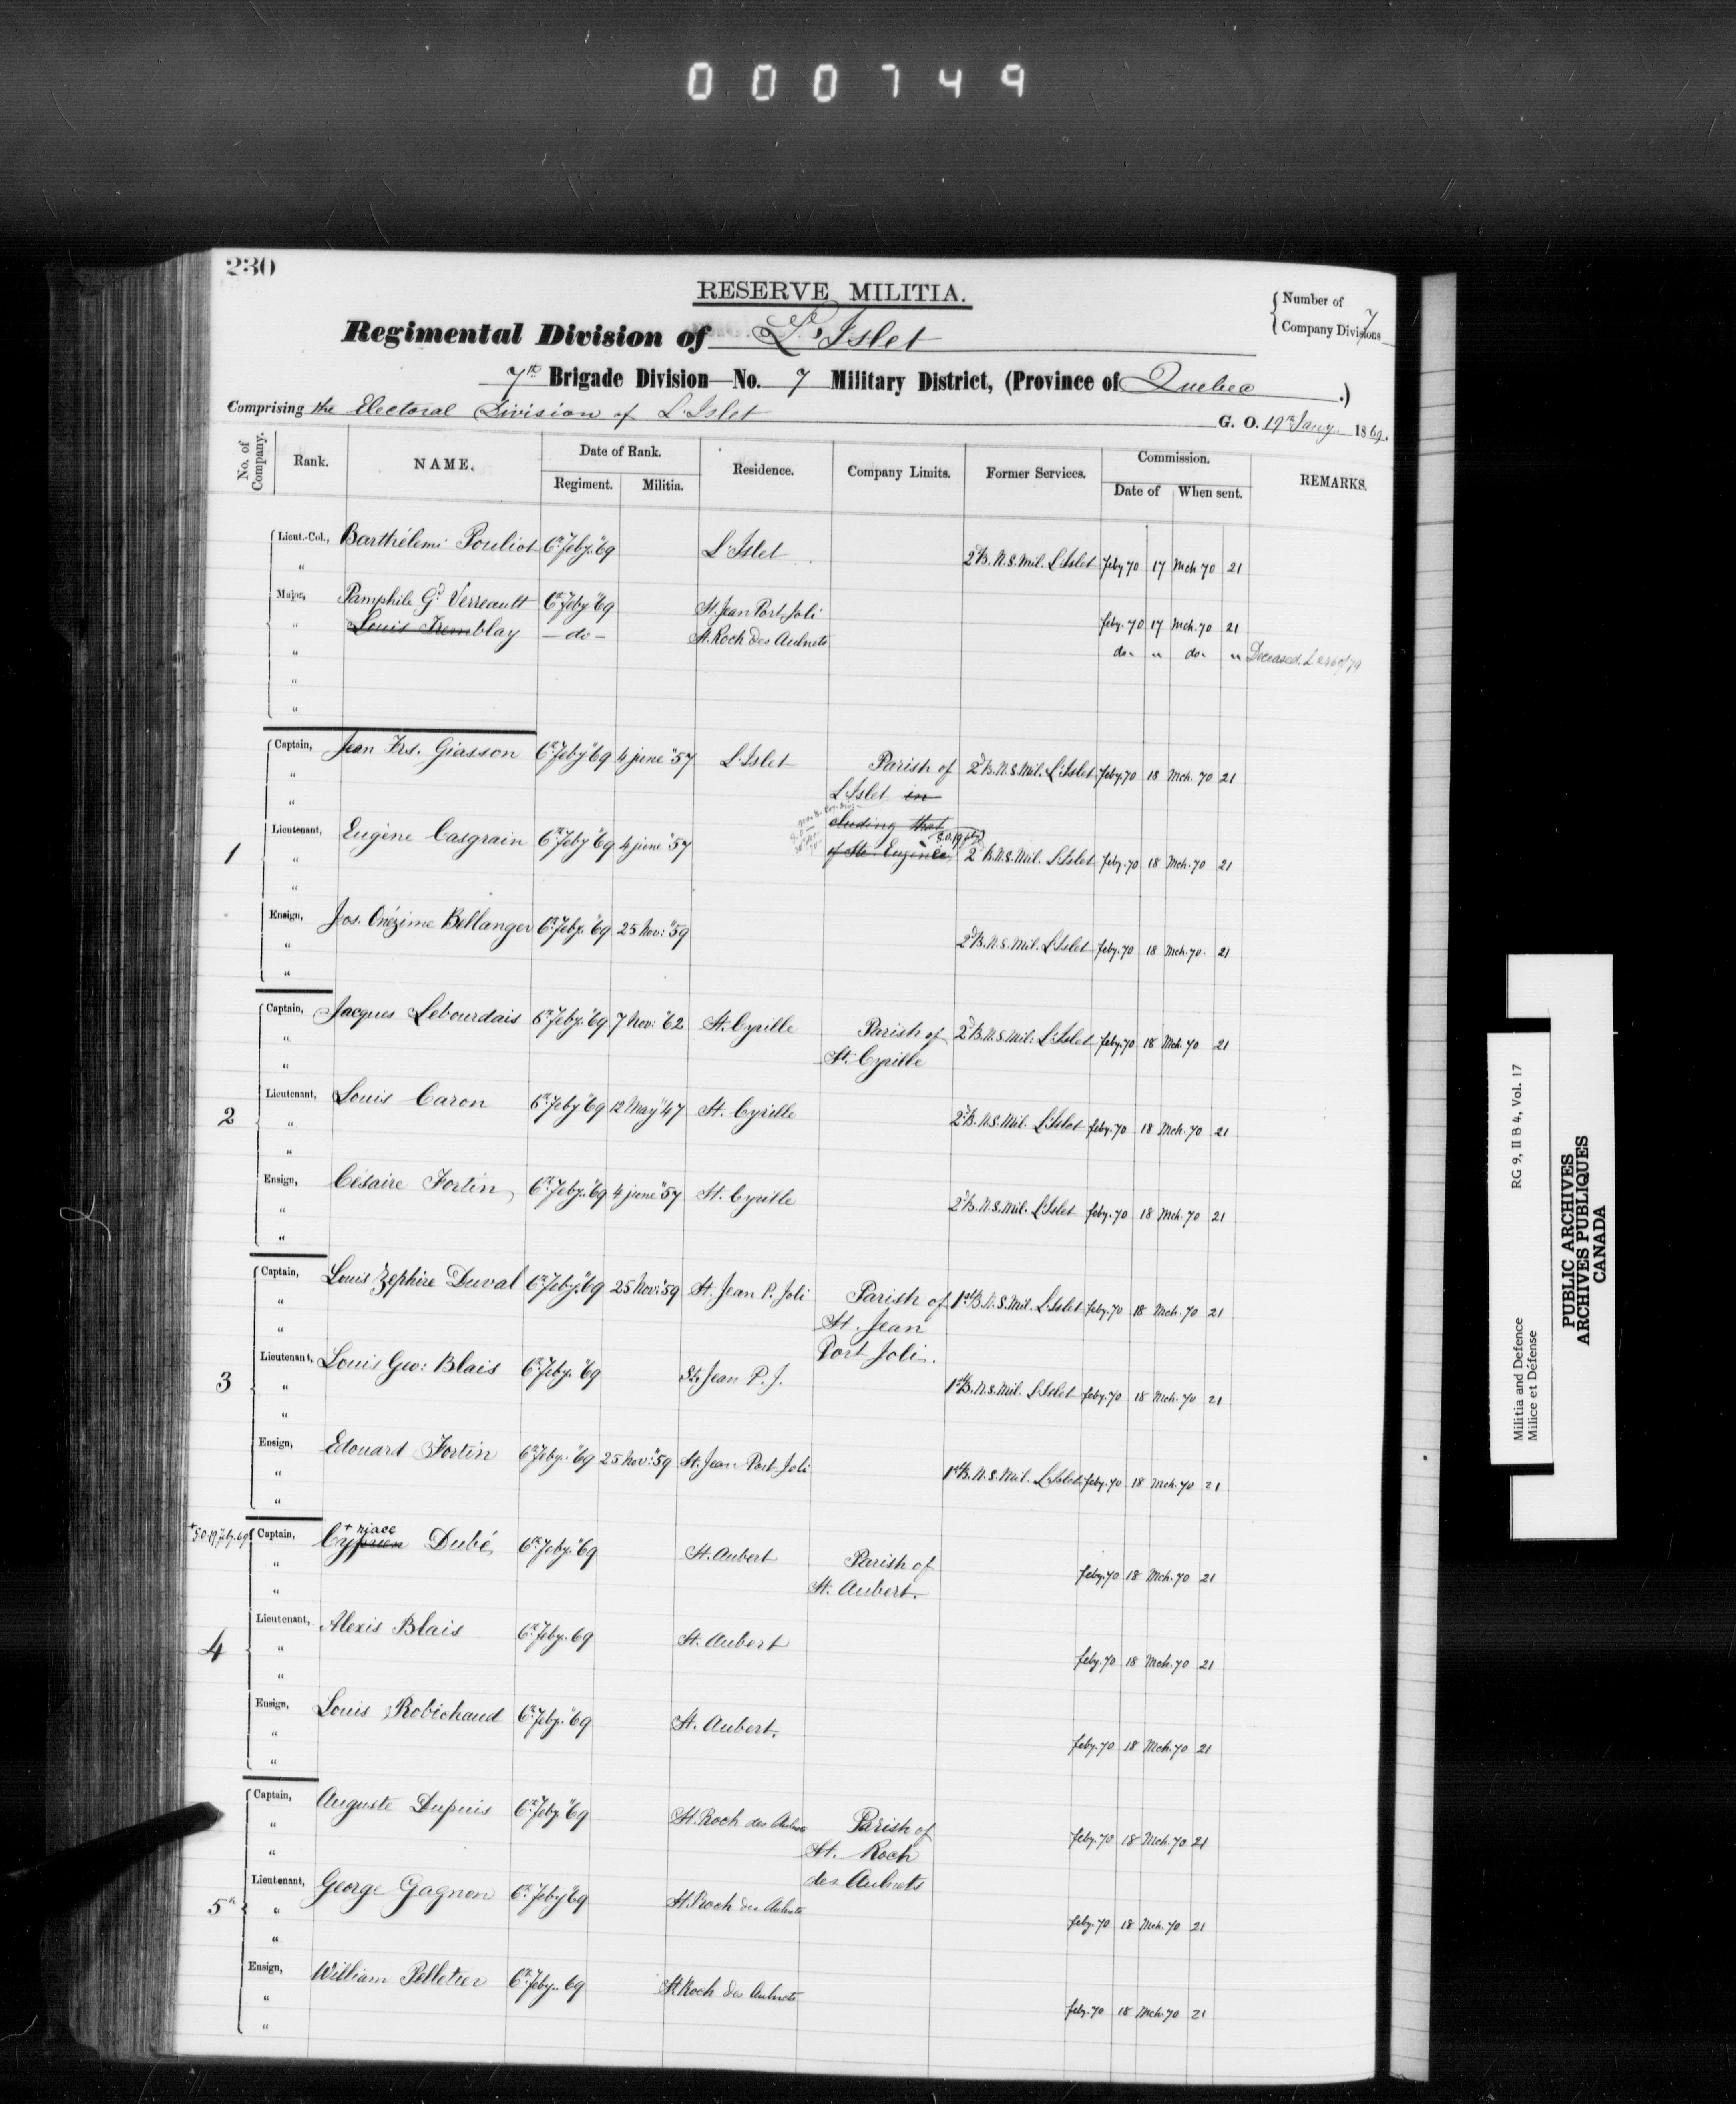 000749
230
RESERVE MILITIA.
Regimental Division of L'Islet
{ Number of Company Divisions 7
7th Brigade Division—No. 7 Military District, (Province of Quebec.)
Comprising the Electoral Division of L'Islet G. O. 1869.
No. of Company. Rank. NAME. Date of Rank. Regiment. Militia. Residence. Company Limits. Former Services. Commission. Date of When sent. REMARKS.
Lieut.-Col., Barthélemi Pouliot 6th Feby. "69 L'Islet 2d B. N. S. Mil. L'Islet Feby 70 17 Mch 70 21
"
Major, Pamphile Gd. Verreault 6th Feby "69 St. Jean Port Joli feby. 70 17 Mch. 70 21
" Louis Tremblay — do — St. Roch des Aulnets do. " do. " Deceased.
"
"
"
Captain, Jean Frs. Giasson 6th Feby "69 4 june "57 L'Islet Parish of 2d B. N. S. Mil. L'Islet feby. 70 18 Mch. 70 21
" L'Islet in
" cluding that
1 Lieutenant, Eugène Casgrain 6th Feby "69 4 june "57 of Ste. Eugène 2 B. N. S. Mil. L'Islet feby. 70 18 Mch. 70 21
"
"
Ensign, Jos. Onézime Bellanger 6th Feby. "69 25 Nov: "59 2d B. N. S. Mil. L'Islet feby. 70 18 Mch. 70. 21
"
"
Captain, Jacques Lebourdais 6th Feby. "69 7 Nov: "62 St. Cyrille Parish of 2d B. N. S. Mil. L'Islet feby. 70 18 Mch. 70 21
" St. Cyrille
"
2 Lieutenant, Louis Caron 6th Feby "69 12 May "47 St. Cyrille 2d B. N. S. Mil. L'Islet feby. 70 18 Mch. 70 21
"
"
Ensign, Césaire Fortin 6th Feby. "69 4 june "57 St. Cyrille 2d B. N. S. Mil. L'Islet feby. 70 18 Mch. 70 21
"
"
Captain, Louis Zéphire Duval 6th Feby. "69 25 Nov: "59 St. Jean P. Joli Parish of 1st B. N. S. Mil. L'Islet feby. 70 18 Mch. 70 21
" St. Jean
" Port Joli.
3 Lieutenant, Louis Geo: Blais 6th Feby. "69 St. Jean P. J. 1st B. N. S. Mil. L'Islet feby. 70 18 Mch. 70 21
"
"
Ensign, Edouard Fortin 6th Feby. "69 25 Nov: "59 St. Jean Port Joli 1st B. N. S. Mil. L'Islet feby. 70 18 Mch. 70 21
"
"
+ riace
+ G.O. 19 Feby. 69 Captain, Cyprien Dubé 6th Feby. "69 St. Aubert Parish of feby. 70 18 Mch. 70 21
" St. Aubert.
"
4 Lieutenant, Alexis Blais 6th Feby. 69 St. Aubert feby. 70 18 Mch. 70 21
"
"
Ensign, Louis Robichaud 6th Feby. "69 St. Aubert. feby. 70 18 Mch. 70 21
"
"
Captain, Auguste Dupuis 6th Feby. "69 St. Roch des Aulnets Parish of feby. 70 18 Mch. 70 21
" St. Roch
" des Aulnets
5th Lieutenant, George Gagnon 6th Feby "69 St. Roch des Aulnets feby. 70 18 Mch. 70 21
"
"
Ensign, William Pelletier 6th Feby. 69 St. Roch des Aulnets feby. 70 18 Mch. 70 21
"
"
Militia and Defence RG 9, II B 4, Vol. 17
Milice et Défense
PUBLIC ARCHIVES
ARCHIVES PUBLIQUES
CANADA